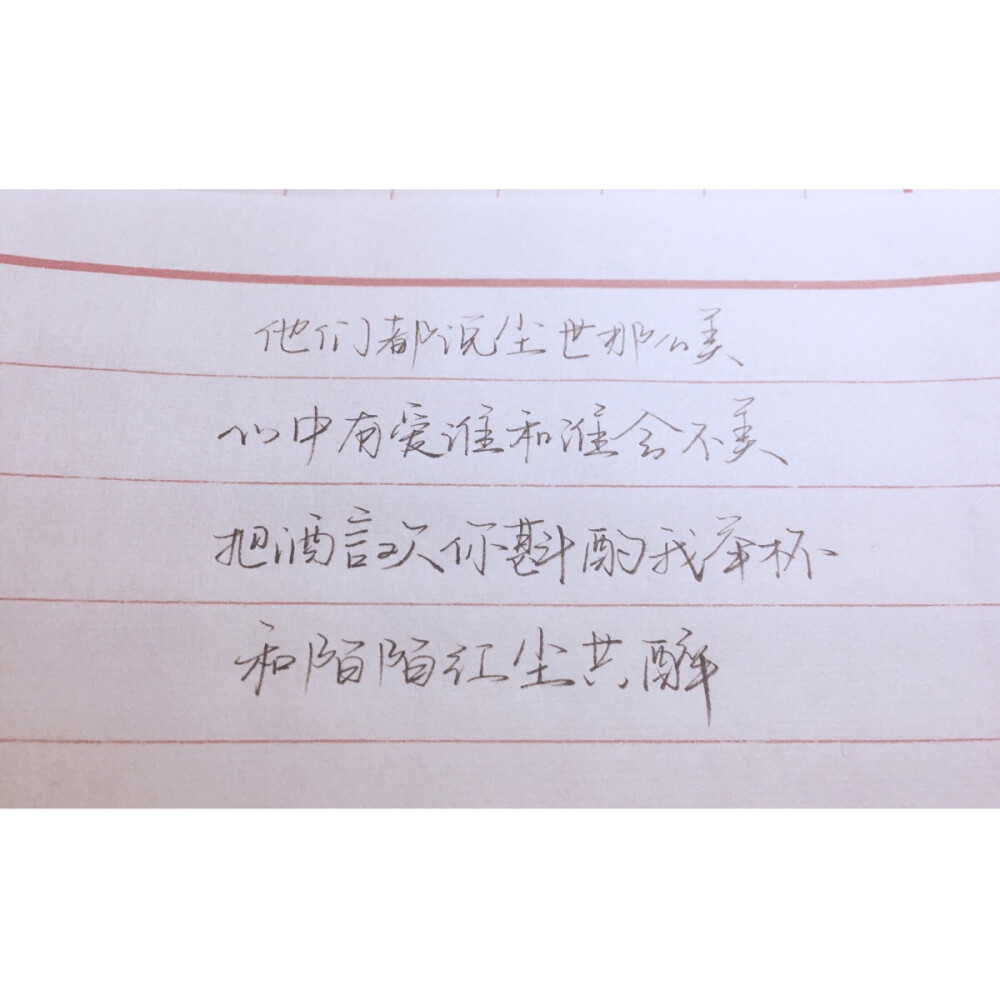 他们都说尘世那么美
心中有爱谁和谁会不美
把酒言欢你斟酌我举杯
和陌陌红尘共醉